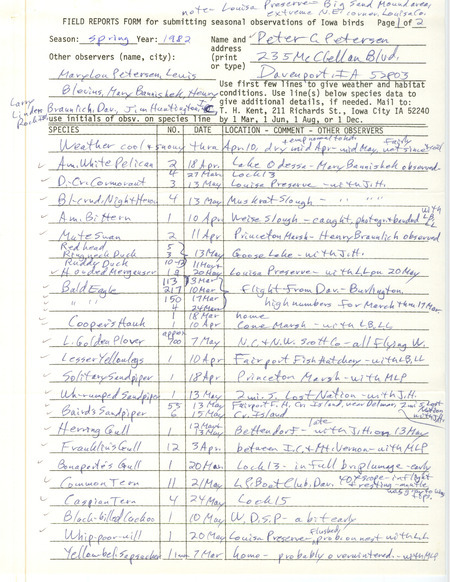 note - Louisa Preserve = Big Sand Mound area,
extreme N.E. corner, Louisa Co.
FIELD REPORTS FORM for submitting seasonal observations of Iowa birds Page 1 of 2
Season: Spring Year: 1982 Name and Peter C Petersen
Other observers (name, city): address 235 McClellan Blvd.
(print or type) Davenport, IA 52803
Marylou Petersen, Lewis
Blevins, Mary Bannishek, Henry
Larry Linder Rock Isl.
Braunlich, Dav., Jim Huntington, I.C.
use initials of obsv. on species line
Use first few lines to give weather and habitat
conditions. Use line(s) below species data to
give additional details, if needed. Mail to:
T. H. Kent, 211 Richards St., Iowa City IA 52240
by 1 Mar, 1 Jun, 1 Aug, or 1 Dec.
SPECIES NO. DATE LOCATION - COMMENT - OTHER OBSERVERS
Weather cool & snowy thru Apr 10, dry mid Apr - mid May, fairly wet since
Am. White Pelican 2 18 Apr Lake Odessa - Mary Bannishek observed
4 27 Mar Lock 13
D.-Cr. Cormorant 3 13 May Louisa Preserve - with J.H.
Bl-crnd. Night Heron 4 13 May Muskrat Slough - " " "
Am. Bittern 1 10 Apr Weise Slough - caught, photogr. + banded with LB, LL
Mute Swan 2 11 Apr Princeton Marsh - Henry Braunlich observed
Redhead 5
Ring neck Duck 3 13 May Goose Lake - with J.H.
Ruddy Duck 10 11 May
Hooded Merganser 1 ♀ 20 May Louisa Preserve - with LL on 20 May
Bald Eagle 113 3 Mar
217 10 Mar Flight from Dav - Burlington
" " 150 17 Mar high numbers for March thru 17 Mar.
4 24 Mar
Cooper's Hawk 1 18 Mar home
1 10 Apr Cone Marsh - with LB, LL
L. Golden Plover approx 900 7 May N.C. & N.W. Scott Co - all flying W.
Lesser Yellowlegs 1 10 Apr Fairport Fish Hatchery - with LB, LL
Solitary Sandpiper 1 18 Apr Princeton Marsh - with MLP
Wh-rumped Sandpiper 13 May 2 mi. S. Lost Nation - with J.H.
Baird's Sandpiper 53 13 May Fairport F.H., Cr. Island, near Delmar, 2 mi S Lost Nation with J.H.
6 15 May Cr. Island
Herring Gull 12 May
13 May Bettendorf - late with J.H. on 13 May
Franklin's Gull 12 3 Apr between I.C. & Mt. Vernon - with MLP
Bonaparte's Gull 1 20 Mar Lock 13 - in full br. plumage - early
Common Tern 11 2 May L.P. Boat Club, Dav. 40x scope - in flight + resting - mantle
Caspian Tern 4 24 May Lock 15
Black-billed Cuckoo 1 10 May W.D.S.P - a bit early
Whip-poor-will 1 20 May Louisa Preserve, flushed, prob. on nest - with LL
Yellow-bel. Sapsucker 1 imm 7 Mar home - probably overwintered. - with MLP